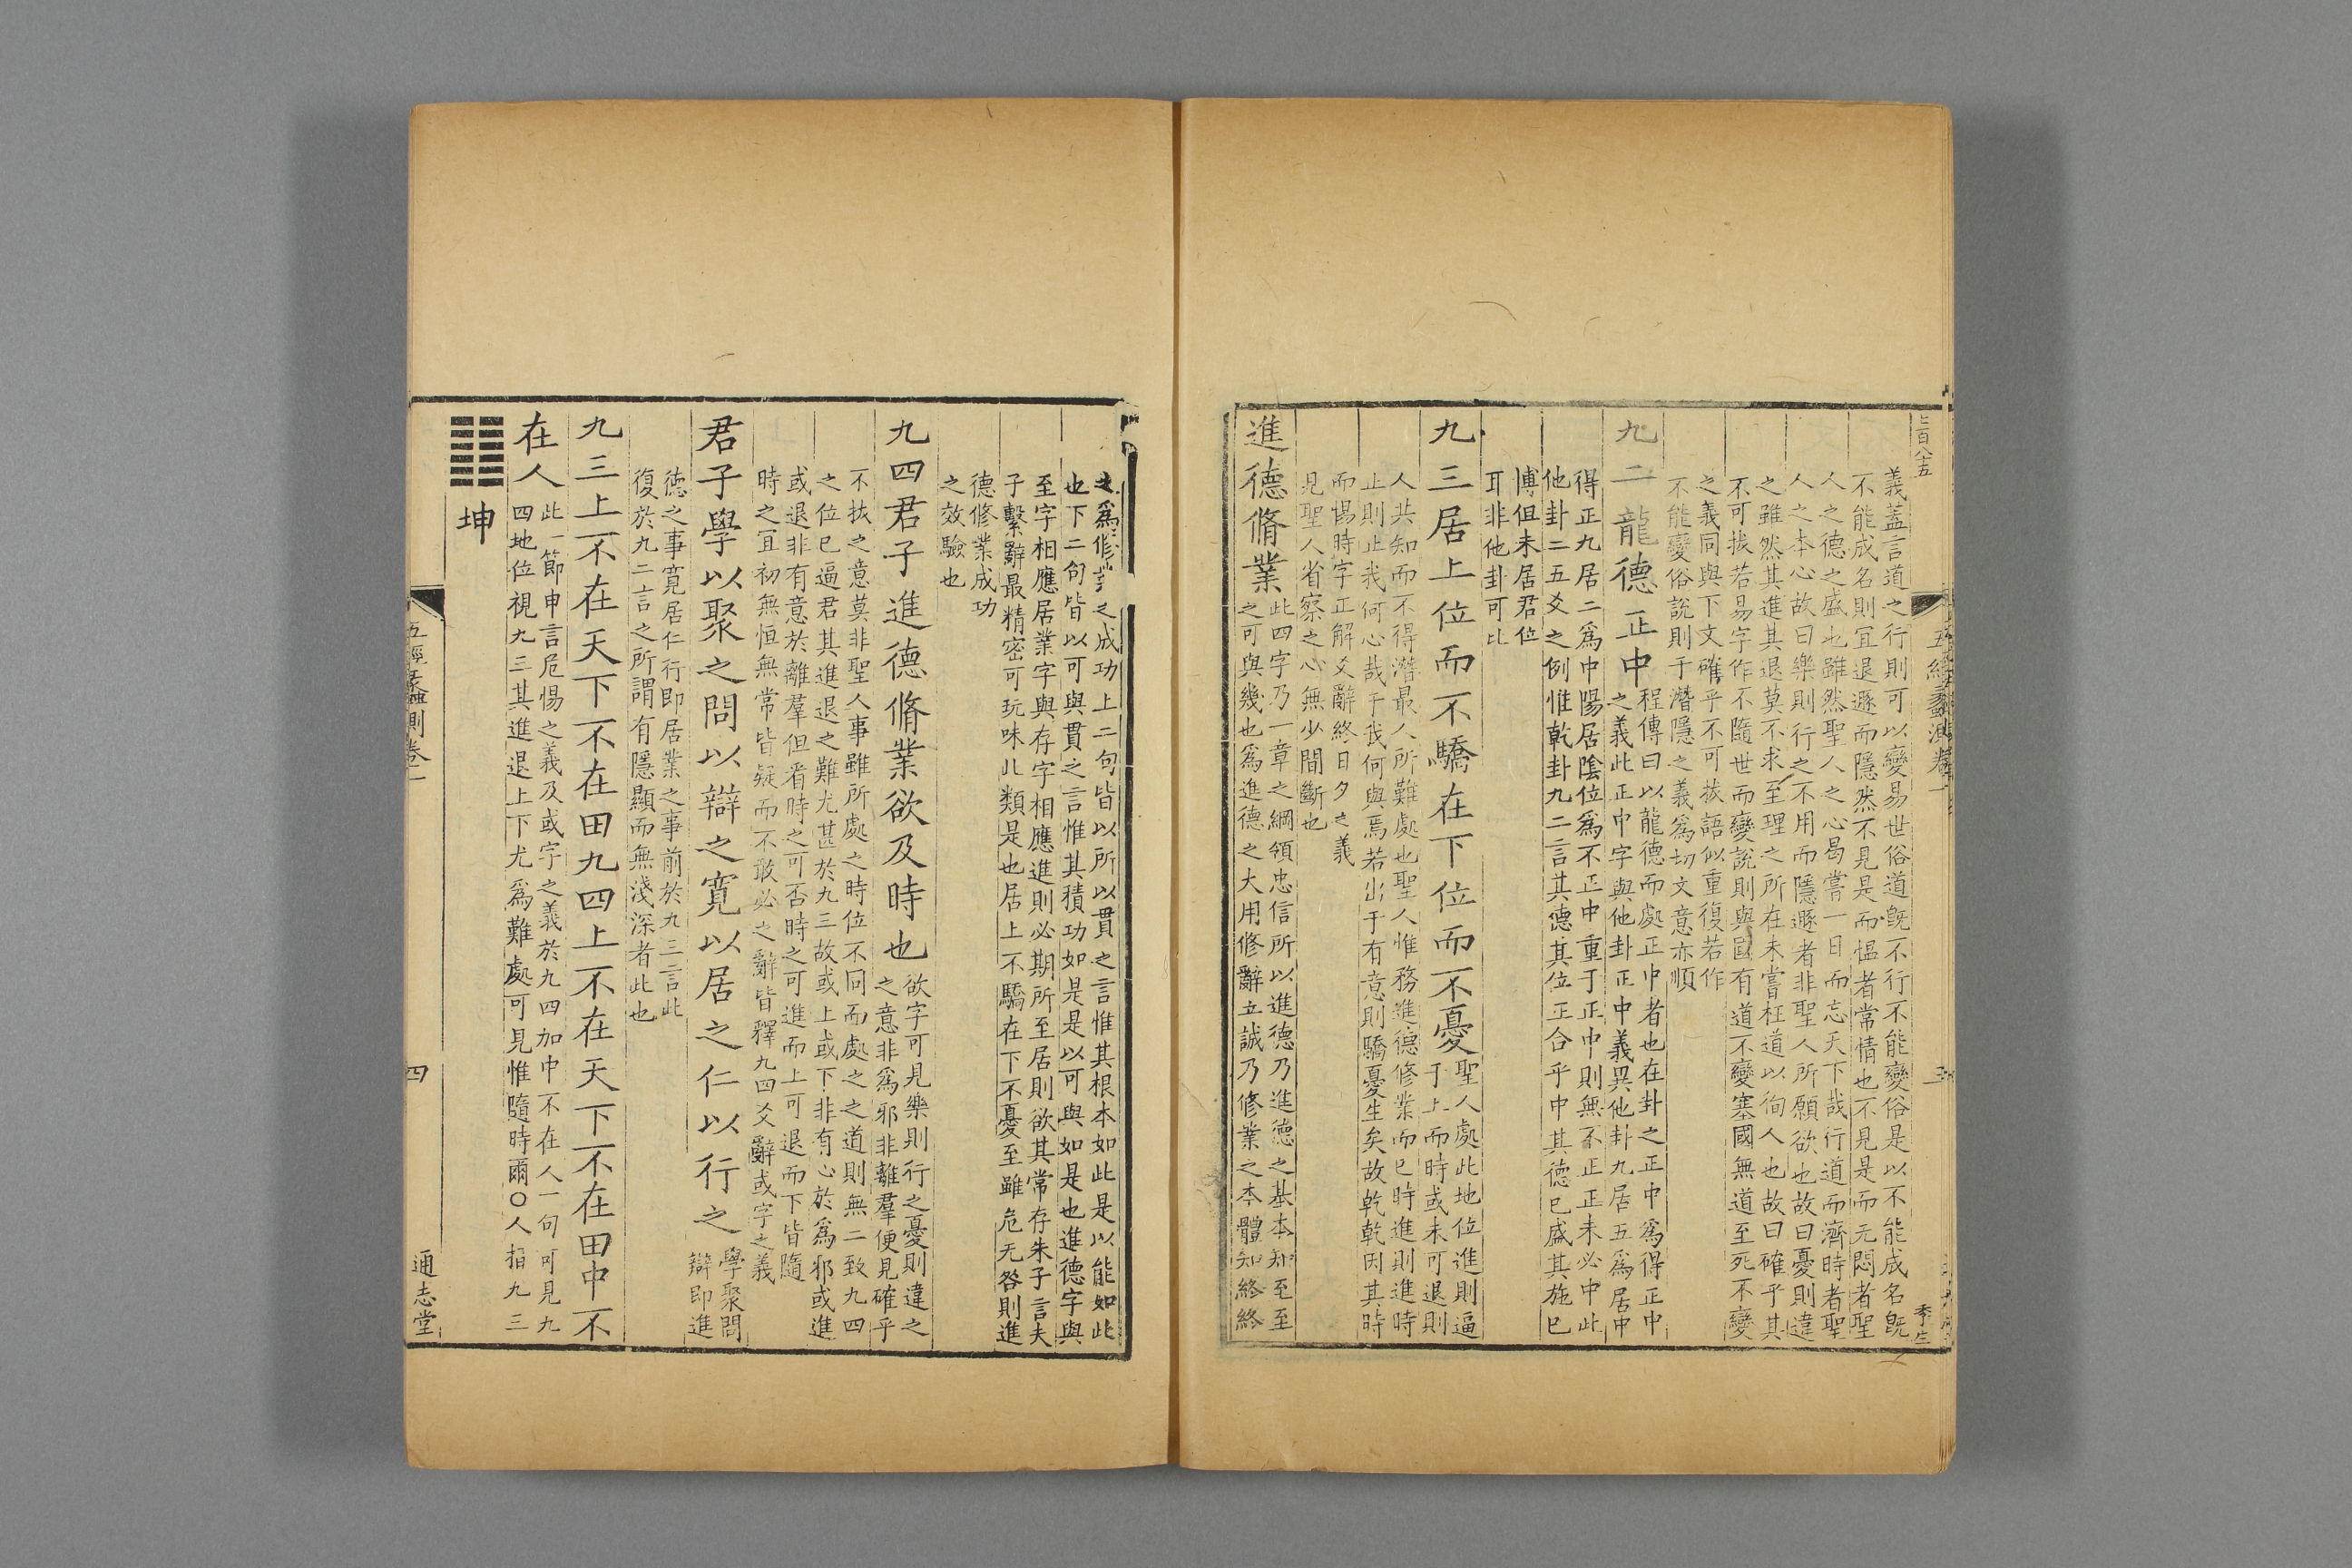 義蓋言道之行則可以變易世俗道既不行不能變俗是以不能成名既
不能成名則宜退遯而隱然不見是而愠者常情也不見是而无悶者聖
人之德之盛也雖然聖人之心曷嘗一日而忘天下哉行道而濟時者聖
人之本心故曰樂則行之不用而隱遯者非聖人所願欲也故曰憂則違
之雖然其進其退莫不求至理之所在未嘗枉道以徇人也故曰確乎其
不可拔若易字作不隨世而變說則與國有道不變塞國無道至死不變
之義同與下文確乎不可拔語似重復若作
不能變俗說則于潛隱之義爲切文意亦順
九二龍德正中
程傳曰以龍德而處正中者也在卦之正中爲得正中
之義此正中字與他卦正中義異他卦九居五爲居中
得正九居二爲中陽居陰位爲不正中重于正中則無不正正未必中此
他卦二五爻之例惟乾卦九二言其德其位正合乎中其德已盛其施已
博但未居君位
耳非他卦可比
九三居上位而不驕在下位而不憂
聖人處此地位進則逼
于上而時或未可退則
人共知而不得潛最人所難處也聖人惟務進德修業而已時進則進時
止則止我何心哉于我何與焉若出于有意則驕憂生矣故乾乾因其時
而惕時字正解爻辭終日夕之義
見聖人省察之心無少間斷也
進德脩業
此四字乃一章之綱領忠信所以進德乃進德之基本知至至
之可與幾也爲進德之大用修辭立誠乃修業之本體知終終
之爲修業之成功上二句皆以所以貫之言惟其根本如此是以能如此
也下二句皆以可與貫之言惟其積功如是是以可與如是也進德字與
至字相應居業字與存字相應進則必期所至居則欲其常存朱子言夫
子繫辭最精密可玩味此類是也居上不驕在下不憂至雖危无咎則進
德修業成功
之效驗也
九四君子進德脩業欲及時也
欲字可見樂則行之憂則違之
之意非爲邪非離羣便見確乎
不拔之意莫非聖人事雖所處之時位不同而處之之道則無二致九四
之位已逼君其進退之難尤甚於九三故或上或下非有心於爲邪或進
或退非有意於離羣但看時之可否時之可進而上可退而下皆隨
時之宜初無恒無常皆疑而不敢必之辭皆釋九四爻辭或字之義
君子學以聚之問以辯之寬以居之仁以行之
學聚問
辯即進
德之事寬居仁行即居業之事前於九三言此
復於九二言之所謂有隱顯而無淺深者此也
九三上不在天下不在田九四上不在天下不在田中不
在人
此一節申言危惕之義及或字之義於九四加中不在人一句可見九
四地位視九三其進退上下尤爲難處可見惟隨時爾○人指九三
坤
五經蠡測卷一
四
通志堂